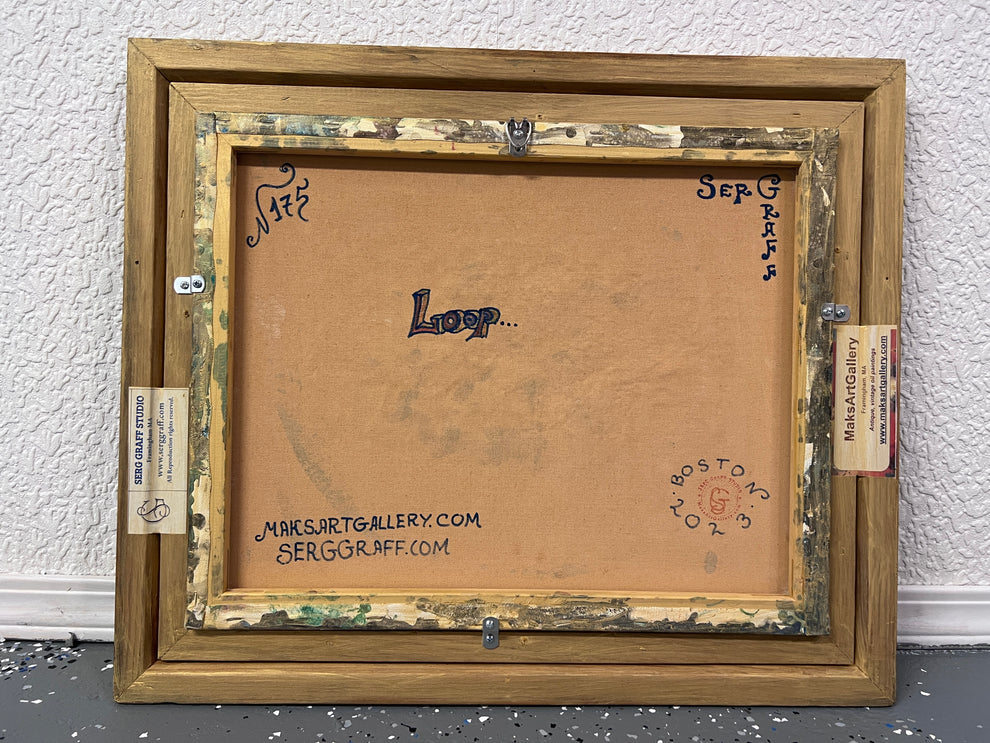 N175
SER GRAFF
Loop...
SERG GRAFF STUDIO
Framingham, MA
www.serggraff.com
All Reproduction rights reserved.
MaksArtGallery
Framingham, MA
Antique, vintage oil paintings
www.maksartgallery.com
MAKSARTGALLERY.COM
SERGGRAFF.COM
·BOSTON
2023·